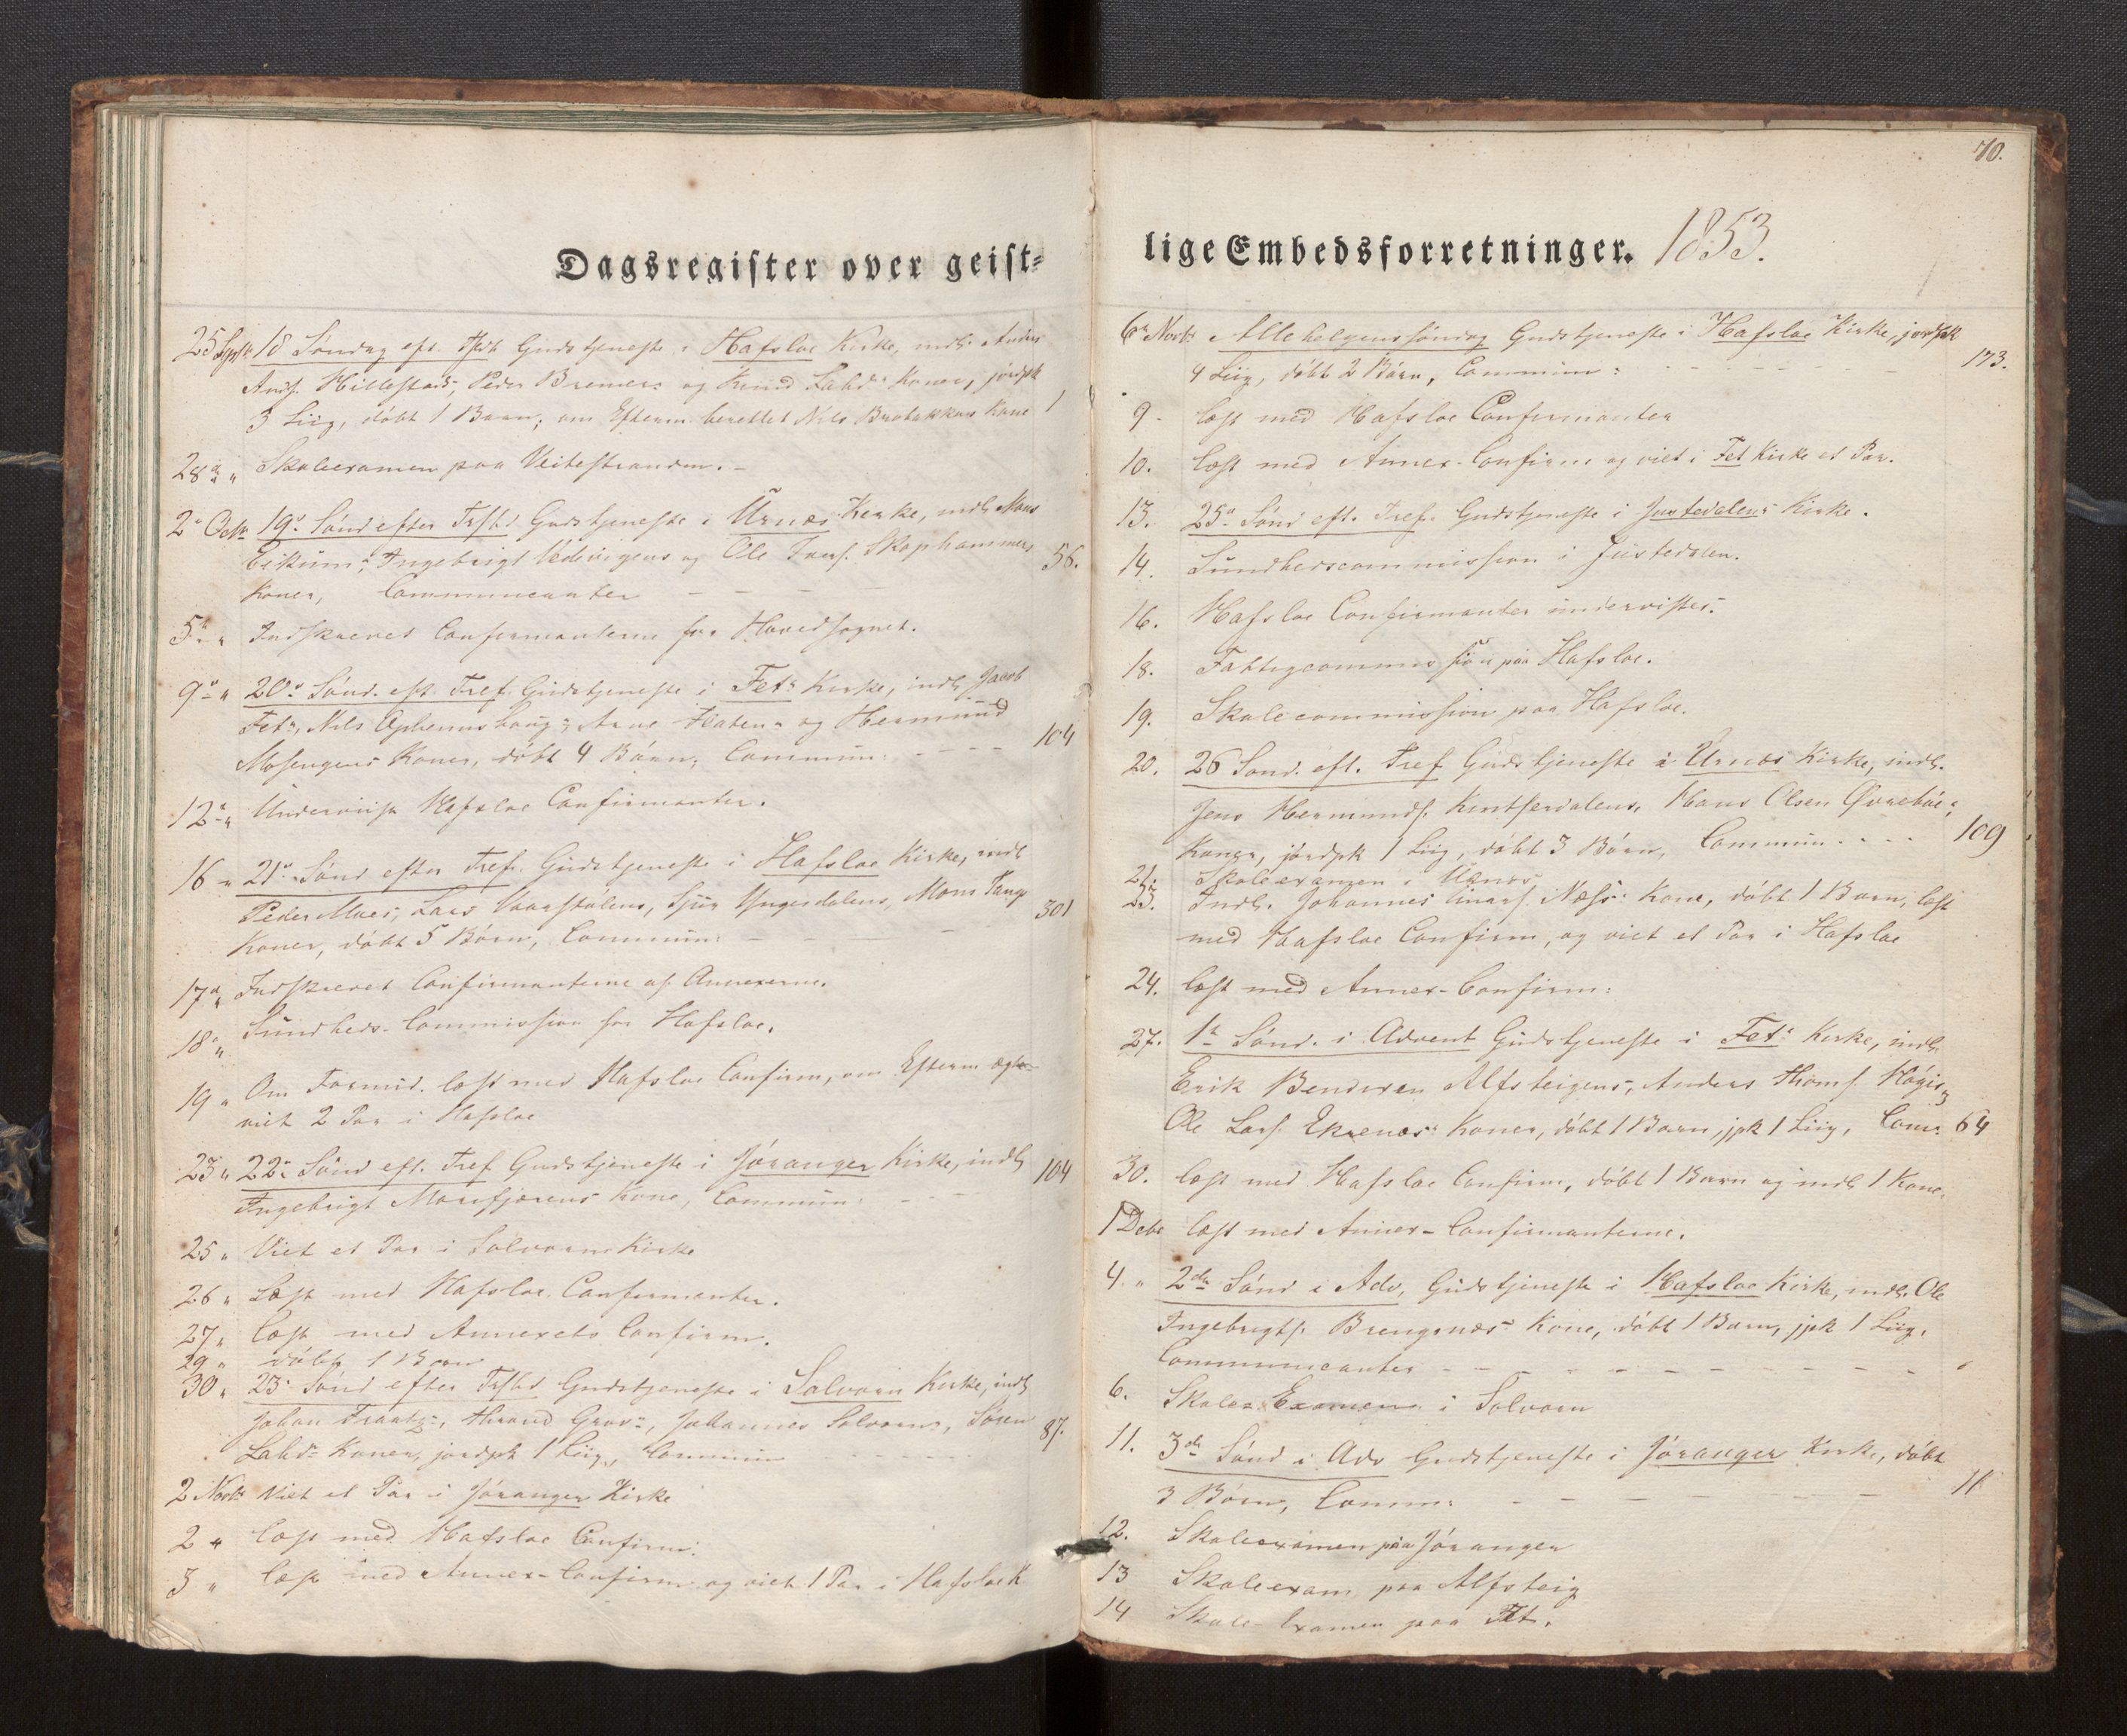 Dagsregister over geist=
25 Septr 18 Søndag eft. Tref. Gudstjeneste i Hafsloe Kirke, indl. Anders
Ands. Hillestads, Peder Bremers og Knud Lahds Koner, jordpk
3 Liig, døbt 1 Barn; om Efterm berettet Nils Kone 1
28de " Skoleexamen paa Veitestranden.
2 Octr 19de Sønd efter Trfhd Gudstjeneste i Urnes Kirke, indl. Mons
Eikums, Ingebrigt og Ole Skophammers
Koner, Communicanter - - - - 56.
5 " Indskrevet Confirmanterne fra Hovedsognet.
9 " 20de Sønd. eft Tref. Gudstjeneste i Fets Kirke, indl. Jacob
Fets, Nils , Arne og Hermund
Mosengens Koner, døbt 4 Børn, Commun: - - - - 104
12 " Underviist Hafsloe Confirmanter.
16 " 21de Sønd efter Tref. Gudstjeneste i Hafsloe Kirke, indl
Peder Moes, Lars , Sjur Yngsdalens, Mons Tang
Koner, døbt 5 Børn, Commun: - - - 301
17de " Indskrevet Confirmanterne af Annexerne.
18 " Sundheds-Commission for Hafsloe.
19 " Om Formid. læst med Hafsloe Confirm, om Efterm
viet 2 Par i Hafsloe
23 " 22de Sønd eft. Tref Gudstjeneste i Jøranger Kirke, indl
Ingebrigt Marifjærens Kone, Commun: - - - 104
25 " Viet et Par i Solvorns Kirke
26 " Læst med Hafsloe Confirmanter.
27 " læst med Annexets Confirm.
29 " døbt 1 Barn
30 " 23 Sønd efter Trfhd Gudstjeneste i Solvorn Kirke, indl
Johan , Thrond , Johannes Solvorns, Søren
Lahds Koner, jordpk 1 Liig, Commun - - - - 87.
2 Novbr Viet et Par i Jøranger Kirke
2 " læst med Hafsloe Confirm:
3 " læst med Annex-Confirm og viet 1 Par i Hafsloe K
70.
lige Embedsforretninger. 1853.
6 Novbr Allehelgenssøndag Gudstjeneste i Hafsloe Kirke, jordpk
4 Liig, døbt 2 Børn, Commun: - - - - 173.
9 læst med Hafsloe Confirmanter
10. læst med Annex-Confirm og viet i Fet Kirke et Par.
13. 25de Sønd eft. Tref. Gudstjeneste i Justedalens Kirke.
14. Sundhedscommission i Justedalen.
16. Hafsloe Confirmanter undervistes.
18. Fattigcommission paa Hafsloe.
19. Skolecommission paa Hafsloe.
20. 26 Sønd. eft. Tref Gudstjeneste i Urnæs Kirke, indl.
Jens Hermunds. , Hans Olsen Øvrebøe
Koner, jordpk 1 Liig, døbt 3 Børn, Commun - - - 109
21. Skoleexamen i Urnes
23. Indl. Johannes Einars. Næss: Kone, døbt 1 Barn, læst
med Hafsloe Confirm, og viet et Par i Hafsloe
24. læst med Annex-Confirm:
27. 1ste Sønd. i Advent Gudstjeneste i Fets Kirke, indl.
Erik Bendixen Alfsteigens, Anders Thoms.
Ole Lars. Ekrenæs: Koner, døbt 1 Barn, jpk 1 Liig, Com: 64
30. læst med Hafsloe Confirm, døbt 1 Barn og indl 1 Kone.
1 Debr læst med Annex-Confirmanterne.
4. " 2den Sønd i Adv, Gudstjeneste i Hafsloe Kirke, indl. Ole
Ingebrigts. Brengsnæs Kone, døbt 1 Barn, jpk 1 Liig.
Communicanter - - - - - - - -
6. Skole-Examen i Solvorn
11. 3die Sønd i Adv Gudstjeneste i Jøranger Kirke, døbt
3 Børn, Comm: - - - - - - 11
12. Skoleexamen paa Jøranger
13 Skoleexam paa Alfsteig
14 Skole-Examen paa Fet.